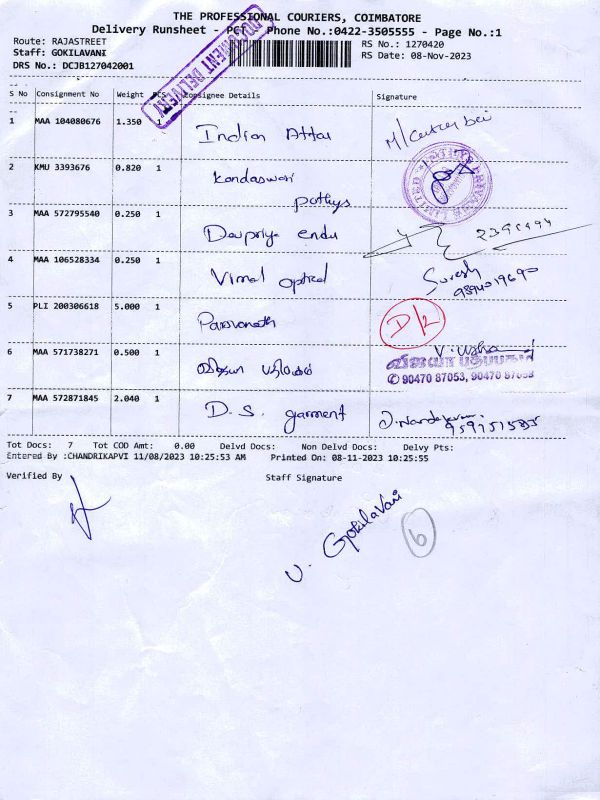 THE PROFESSIONAL COURIERS, COIMBATORE
Delivery Runsheet - PCT Phone No.:0422-3505555 - Page No.:1
Route: RAJASTREET
RS No.: 1270420
Staff: GOKILAVANI
RS Date: 08-Nov-2023
DRS No.: DCJB127042001
DOCUMENT DELIVERY
S No Consignment No Weight PCS Consignee Details Signature
1 MAA 104080676 1.350 1 Indian Attar
2 KMU 3393676 0.820 1 Kandaswari pathys
LIMITED
3 MAA 572795540 0.250 1 Devpriya endu
4 MAA 106528334 0.250 1 Vimal optical Suresh
5 PLI 200306618 5.000 1 Parsvanath D/2
6 MAA 571738271 0.500 1 V. Usha
விஜயா பதிப்பகம்
✆ 90470 87053, 90470 87053
7 MAA 572871845 2.040 1 D. S. garment
Tot Docs: 7 Tot COD Amt: 0.00 Delvd Docs: Non Delvd Docs: Delvy Pts:
Entered By :CHANDRIKAPVI 11/08/2023 10:25:53 AM Printed On: 08-11-2023 10:25:55
Verified By Staff Signature
V. GokilaVani
6